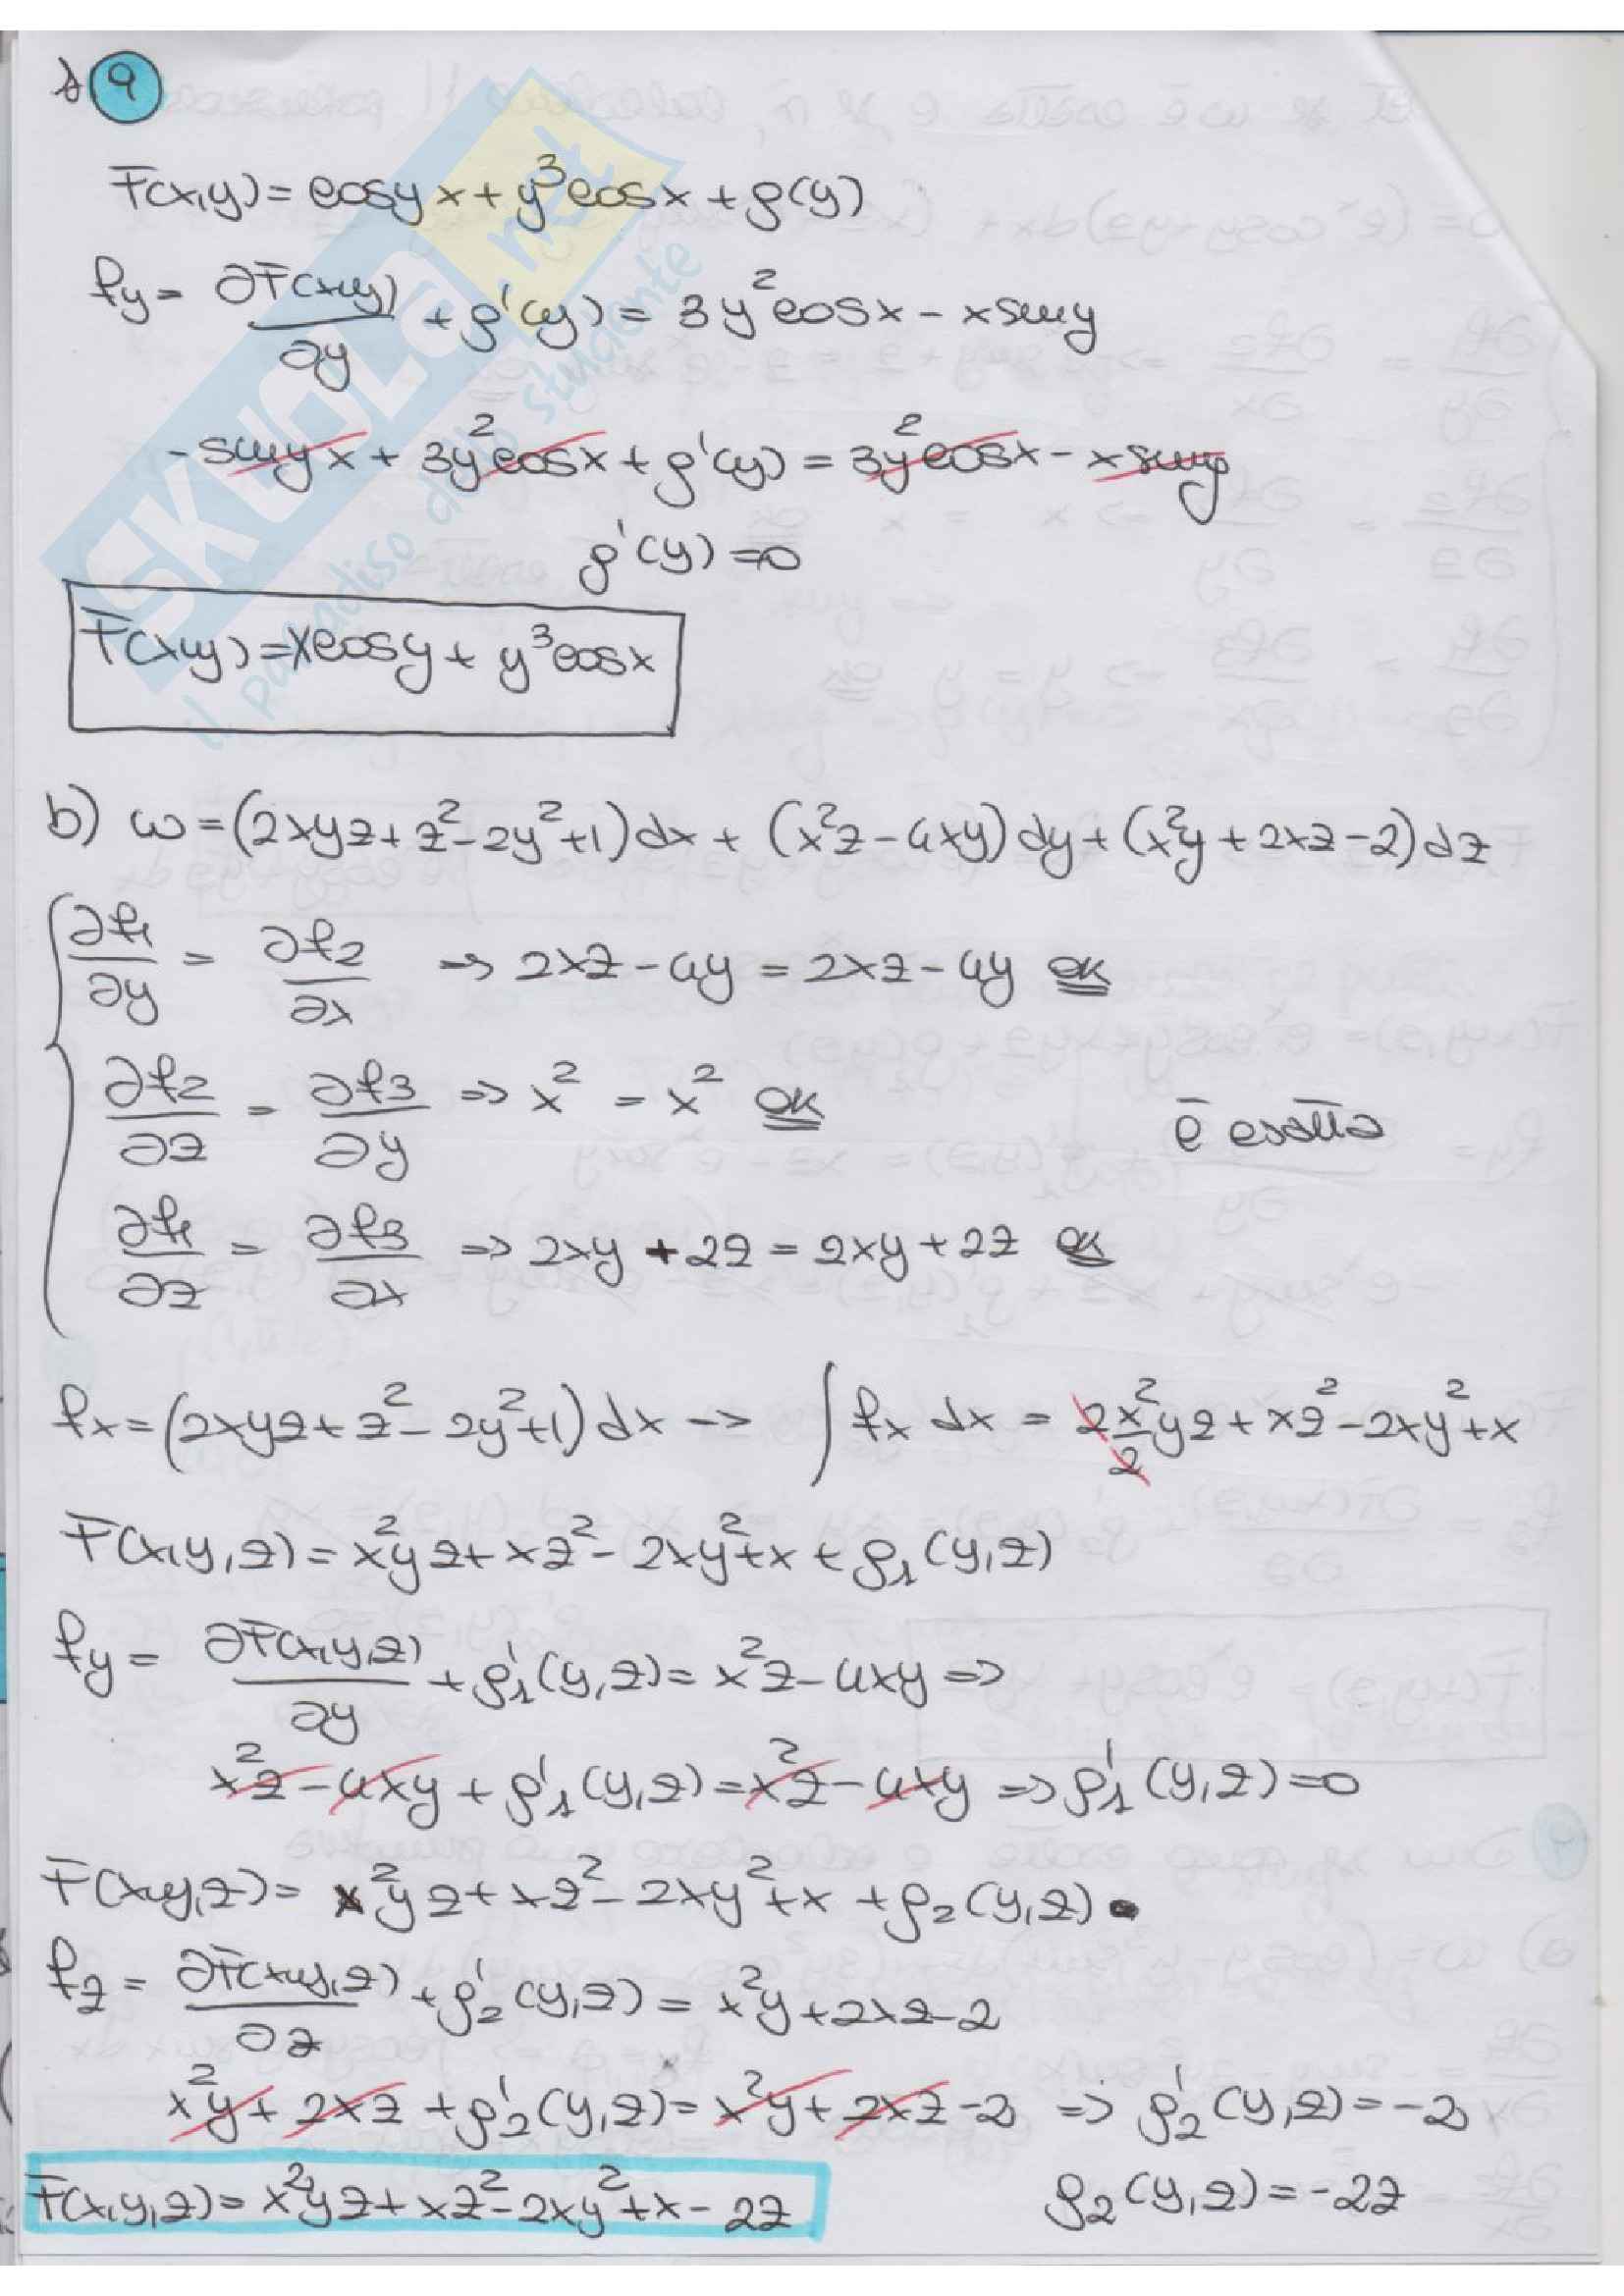 9
F(x,y)= cosy x + y³cosx + g(y)
fy = ∂F(x,y)/∂y + g'(y) = 3y²cosx - xseny
-seny x + 3y²cosx + g'(y) = 3y²cosx - xseny
g'(y)=0
F(x,y)=xcosy + y³cosx
b) ω=(2xyz+z²-2y²+1)dx + (x²z-4xy)dy+(x²y+2xz-2)dz
∂f1/∂y = ∂f2/∂x => 2xz-4y = 2xz-4y ok
∂f2/∂z = ∂f3/∂y => x² = x² ok
è esatta
∂f1/∂z = ∂f3/∂x => 2xy + 2z = 2xy + 2z ok
fx=(2xyz+z²-2y²+1)dx -> ∫fx dx = 2x²/2 yz + xz²-2xy²+x
F(x,y,z)=x²yz+xz²-2xy²+x+g1(y,z)
fy = ∂F(x,y,z)/∂y + g'1(y,z)= x²z-4xy =>
x²z-4xy + g'1(y,z)=x²z-4xy => g'1(y,z)=0
F(x,y,z)= x²yz+xz²-2xy²+x +g2(y,z)
fz = ∂F(x,y,z)/∂z + g'2(y,z) = x²y+2xz-2
x²y+2xz +g'2(y,z)= x²y+2xz-2 => g'2(y,z)=-2
F(x,y,z)= x²yz+xz²-2xy²+x-2z
g2(y,z)=-2z
SKUOLA.net
il paradiso dello studente